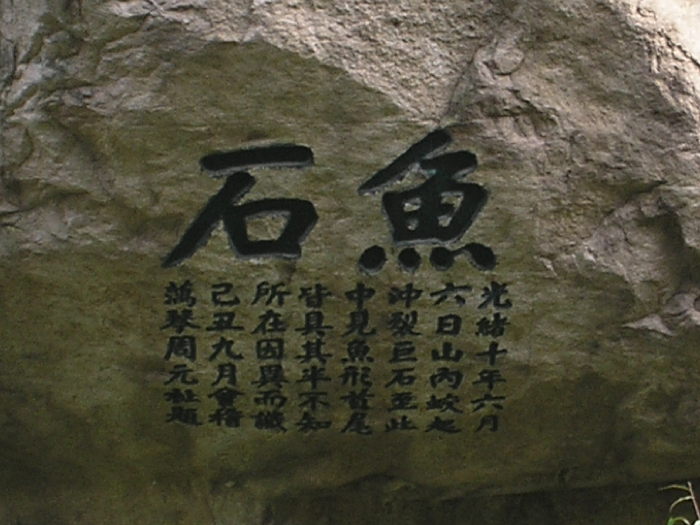 魚石
光緒十年六月
六日山內蛟起
沖裂巨石至此
中見魚形首尾
皆具其半不知
所在因異而
己丑九月會稽
琴周元題